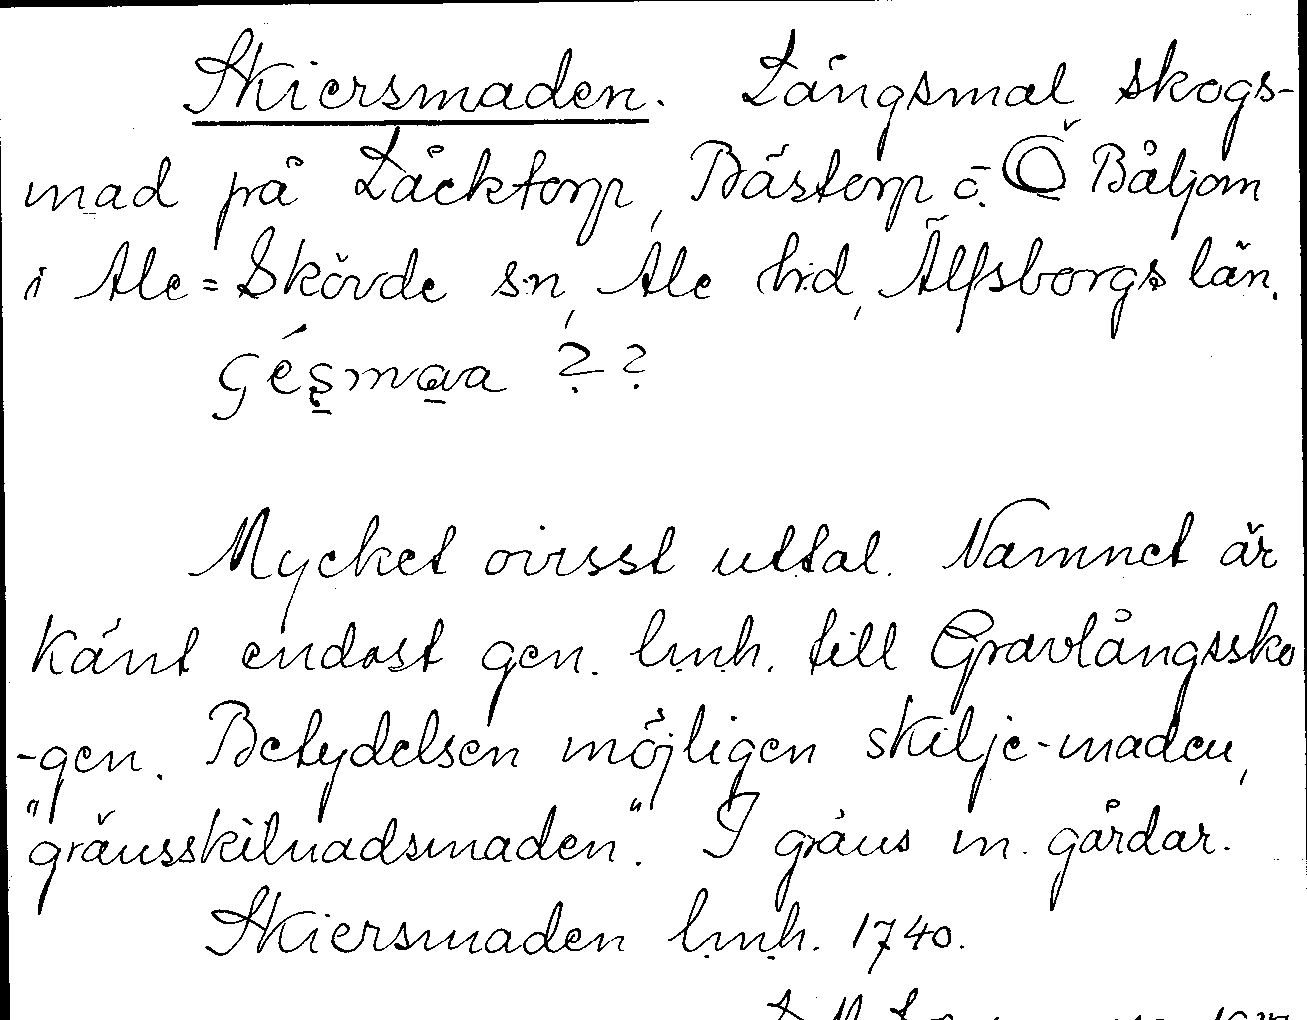 Skiersmaden. Långsmal skogs-
mad på Läcktorp, Bästorp o. Ö Båljom
i Ale=Skövde sn, Ale hd, Älfsborgs län.
Mycket ovisst uttal. Namnet är
känt endast gen. l.m.h. till Gravlångssko
-gen. Betydelsen möjligen skilje-maden,
"gränsskilnadsmaden". I gräns m. gårdar.
Skiersmaden l.m.h. 1740.